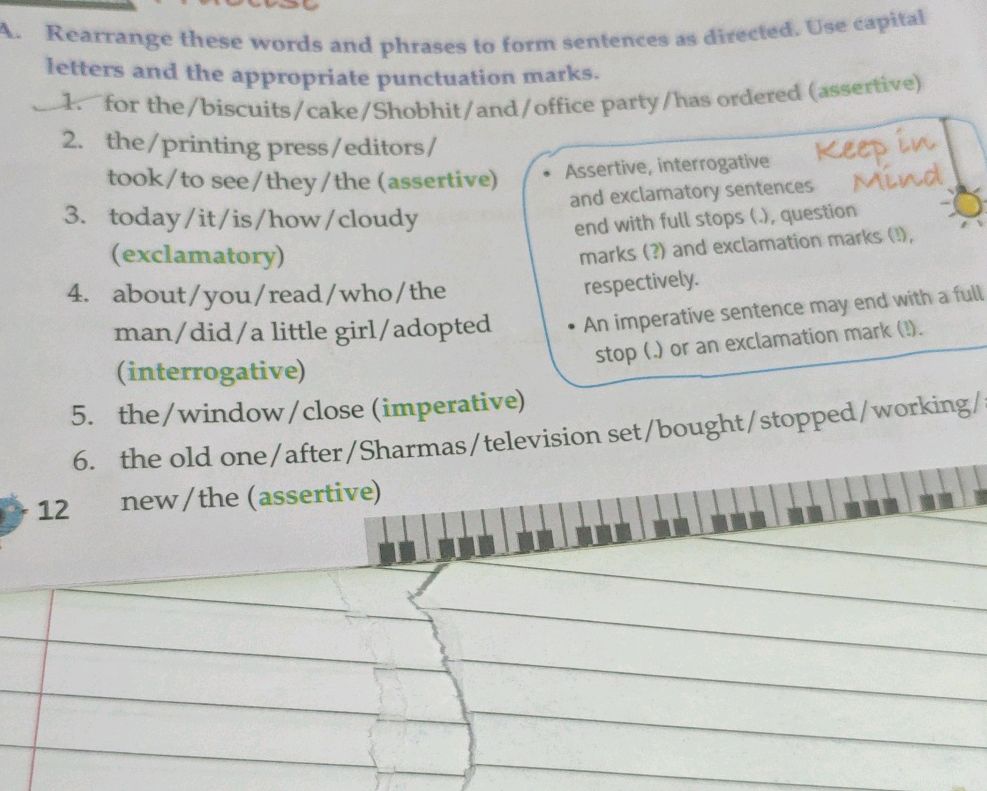 A. Rearrange these words and phrases to form sentences as directed. Use capital
letters and the appropriate punctuation marks.
1. for the/biscuits/cake/Shobhit/and/office party/has ordered (assertive)
2. the/printing press/editors/
took/to see/they/the (assertive)
3. today/it/is/how/cloudy
(exclamatory)
4. about/you/read/who/the
man/did/a little girl/adopted
(interrogative)
Keep in
Mind
• Assertive, interrogative
and exclamatory sentences
end with full stops (.), question
marks (?) and exclamation marks (!),
respectively.
• An imperative sentence may end with a full
stop (.) or an exclamation mark (!).
5. the/window/close (imperative)
6. the old one/after/Sharmas/television set/bought/stopped/working/
new/the (assertive)
12